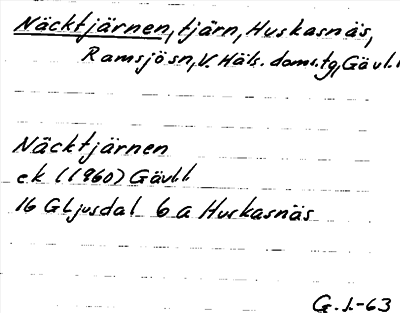 Näcktjärnen, tjärn, Huskasnäs,
Ramsjö sn, V. Häls. doms.tg, Gävl.l
Näcktjärnen
ek (1960) Gävll
16 G Ljusdal 6 a Huskasnäs
G. J.-63